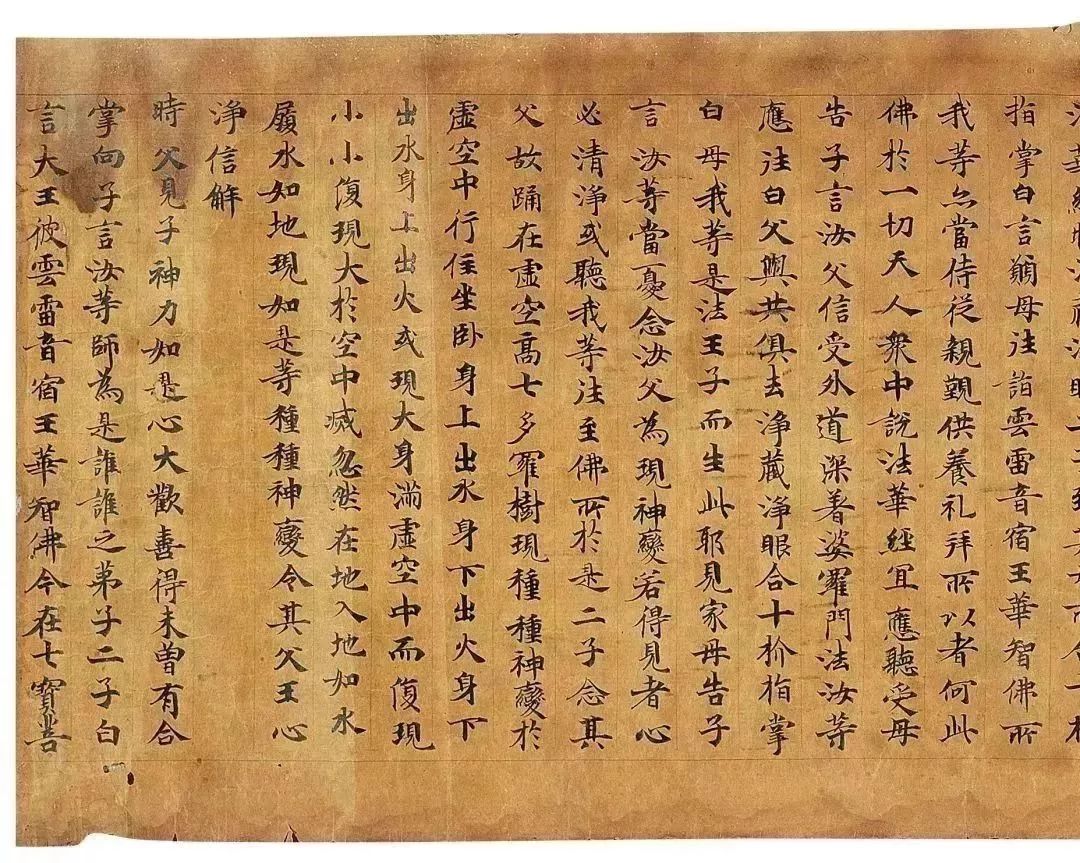 指掌白言願母往詣雲雷音宿王華智佛所
我等亦當侍從親覲供養礼拜所以者何此
佛於一切天人衆中說法華經宜應聽受母
告子言汝父信受外道深著婆羅門法汝等
應往白父與共俱去淨藏淨眼合十抓指掌
白母我等是法王子而生此耶見家母告子
言汝等當憂念汝父為現神變若得見者心
必清淨或聽我等往至佛所於是二子念其
父故踊在虛空高七多羅樹現種種神變於
虛空中行住坐卧身上出水身下出火身下
出水身上出火或現大身滿虛空中而復現
小小復現大於空中滅忽然在地入地如水
履水如地現如是等種種神變令其父王心
淨信解
時父見子神力如是心大歡喜得未曾有合
掌向子言汝等師為是誰誰之弟子二子白
言大王彼雲雷音宿王華智佛今在七寶菩